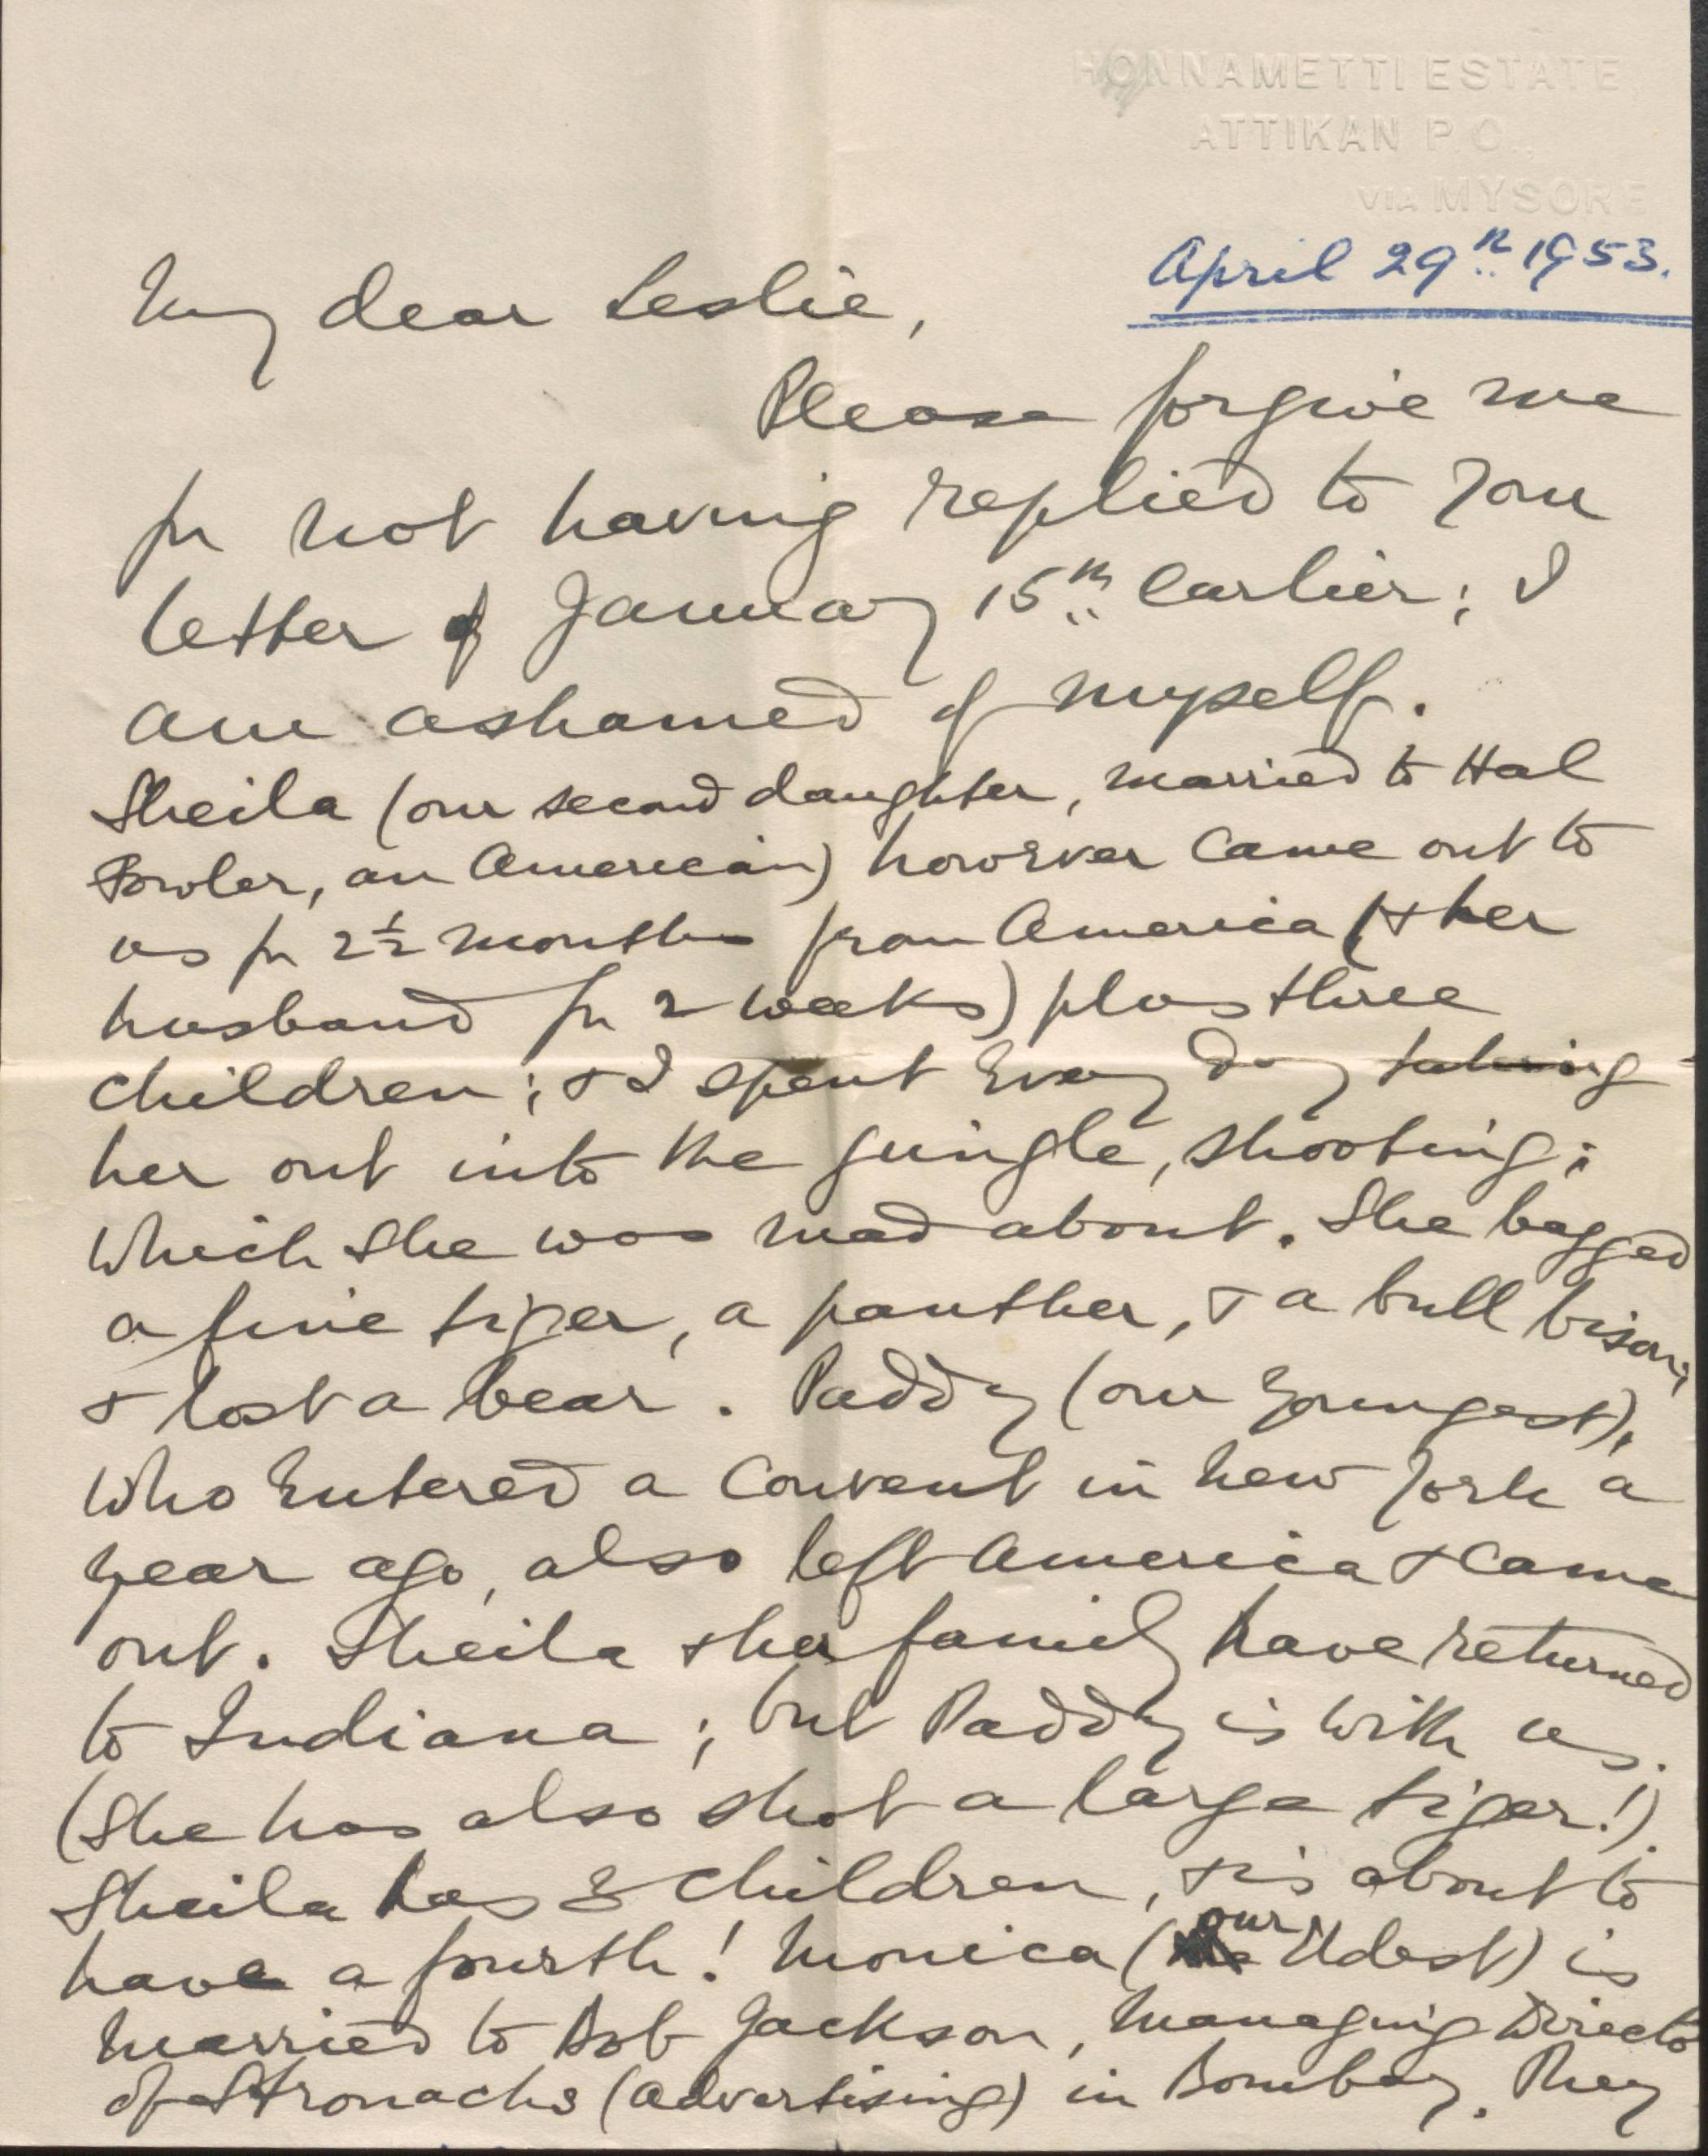 HONNAMETTI ESTATE
ATTIKAN P.O.,
VIA MYSORE
April 29th 1953.
My dear Leslie,
Please forgive me
for not having replied to your
letter of January 15th earlier; I
am ashamed of myself.
Sheila (our second daughter, married to Hal
Fowler, an American) however came out to
us for 2½ months from America (& her
husband for 2 weeks) plus three
children; & I spent every day taking
her out into the jungle, shooting;
which she was mad about. She bagged
a fine tiger, a panther, & a bull bison;
& lost a bear. Paddy (our youngest),
who entered a convent in New York a
year ago, also left America & came
out. Sheila & her family have returned
to Indiana; but Paddy is with us.
(She has also shot a large tiger!).
Sheila has 3 children, & is about to
have a fourth! Monica (our eldest) is
married to Bob Jackson, Managing Director
of Stronachs (advertising) in Bombay. They